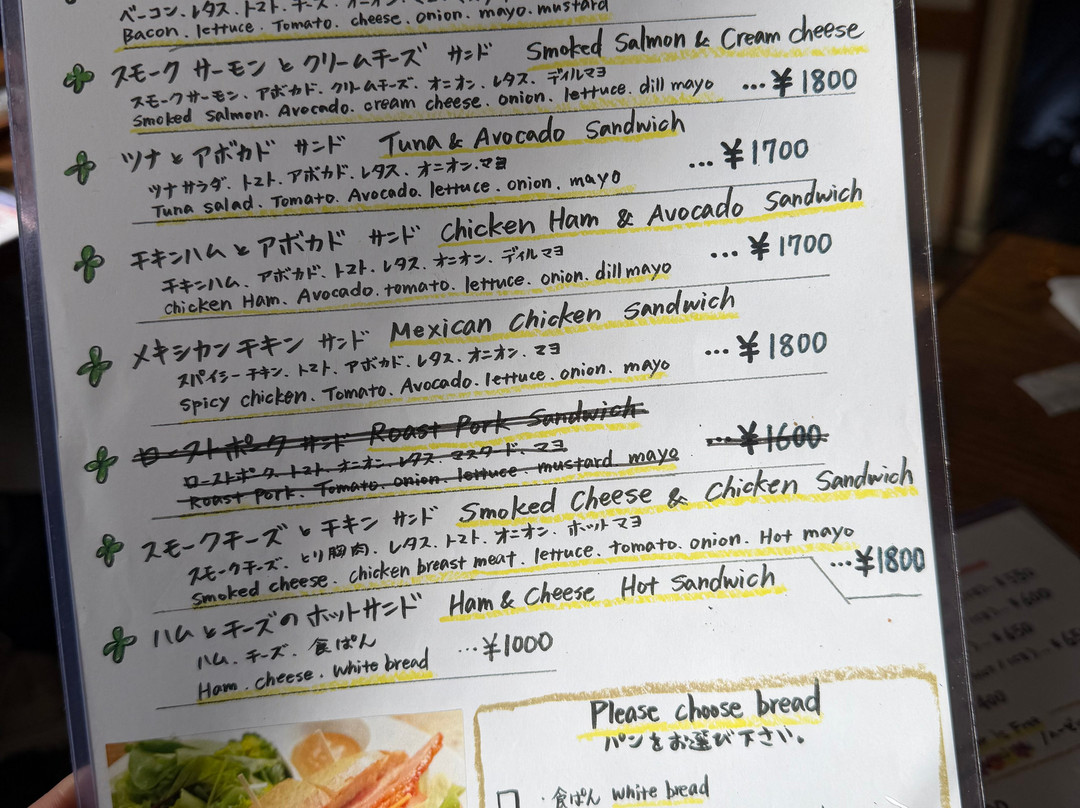 ベーコン.レタス.トマト.チーズ.オニオン.マヨ.マスタード
Bacon.lettuce.Tomato.cheese.onion.mayo.mustard
スモーク サーモンと クリームチーズ サンド Smoked Salmon & Cream cheese
スモークサーモン、アボカド、クリームチーズ、オニオン、レタス、ディルマヨ
Smoked Salmon. Avocado. cream cheese. onion. lettuce. dill mayo ...¥1800
ツナとアボカド サンド Tuna & Avocado Sandwich
ツナサラダ、トマト、アボカド、レタス、オニオン、マヨ ...¥1700
Tuna salad. Tomato. Avocado. lettuce. onion. mayo
チキンハムとアボカド サンド Chicken Ham & Avocado Sandwich
チキンハム、アボカド、トマト、レタス、オニオン、ディルマヨ ...¥1700
chicken Ham. Avocado. tomato. lettuce. onion. dill mayo
メキシカンチキン サンド Mexican Chicken Sandwich
スパイシーチキン、トマト、アボカド、レタス、オニオン、マヨ ...¥1800
Spicy chicken. Tomato. Avocado. lettuce. onion. mayo
ローストポーク サンド Roast Pork Sandwich
ローストポーク、トマト、オニオン、レタス、マスタード、マヨ ...¥1600
Roast Pork. Tomato. onion. lettuce. mustard mayo
スモークチーズとチキン サンド Smoked Cheese & Chicken Sandwich
スモークチーズ、とり胸肉、レタス、トマト、オニオン、ホットマヨ
Smoked cheese. chicken breast meat. lettuce. tomato. onion. Hot mayo
...¥1800
ハムとチーズのホットサンド Ham & Cheese Hot Sandwich
ハム、チーズ、食ぱん ...¥1000
Ham. cheese. white bread
Please choose bread
パンをお選び下さい。
・食ぱん white bread